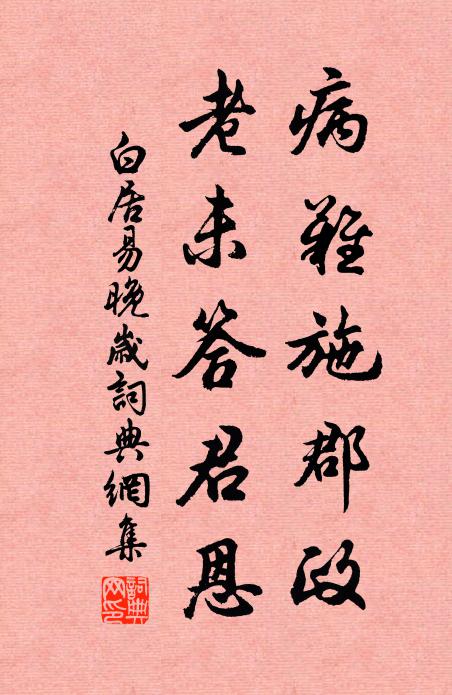 病難施郡政
老未答君恩
白居易晚歲詞典網集
詞典網印